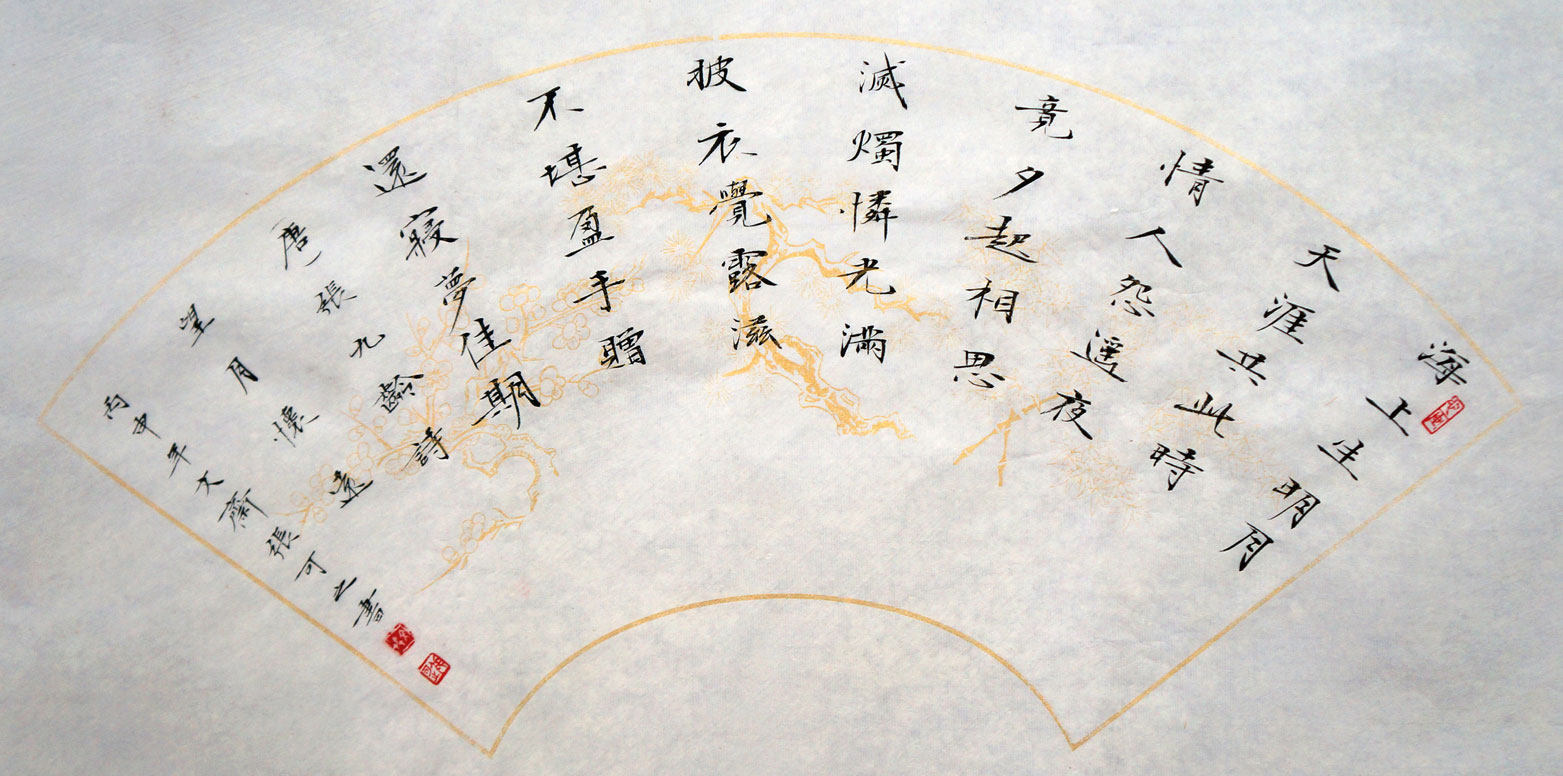 海上生明月
天涯共此時
情人怨遥夜
竟夕起相思
滅燭憐光滿
披衣覺露滋
不堪盈手贈
還寢夢佳期
唐張九齡詩
望月懷遠
丙申年文齋張可之書